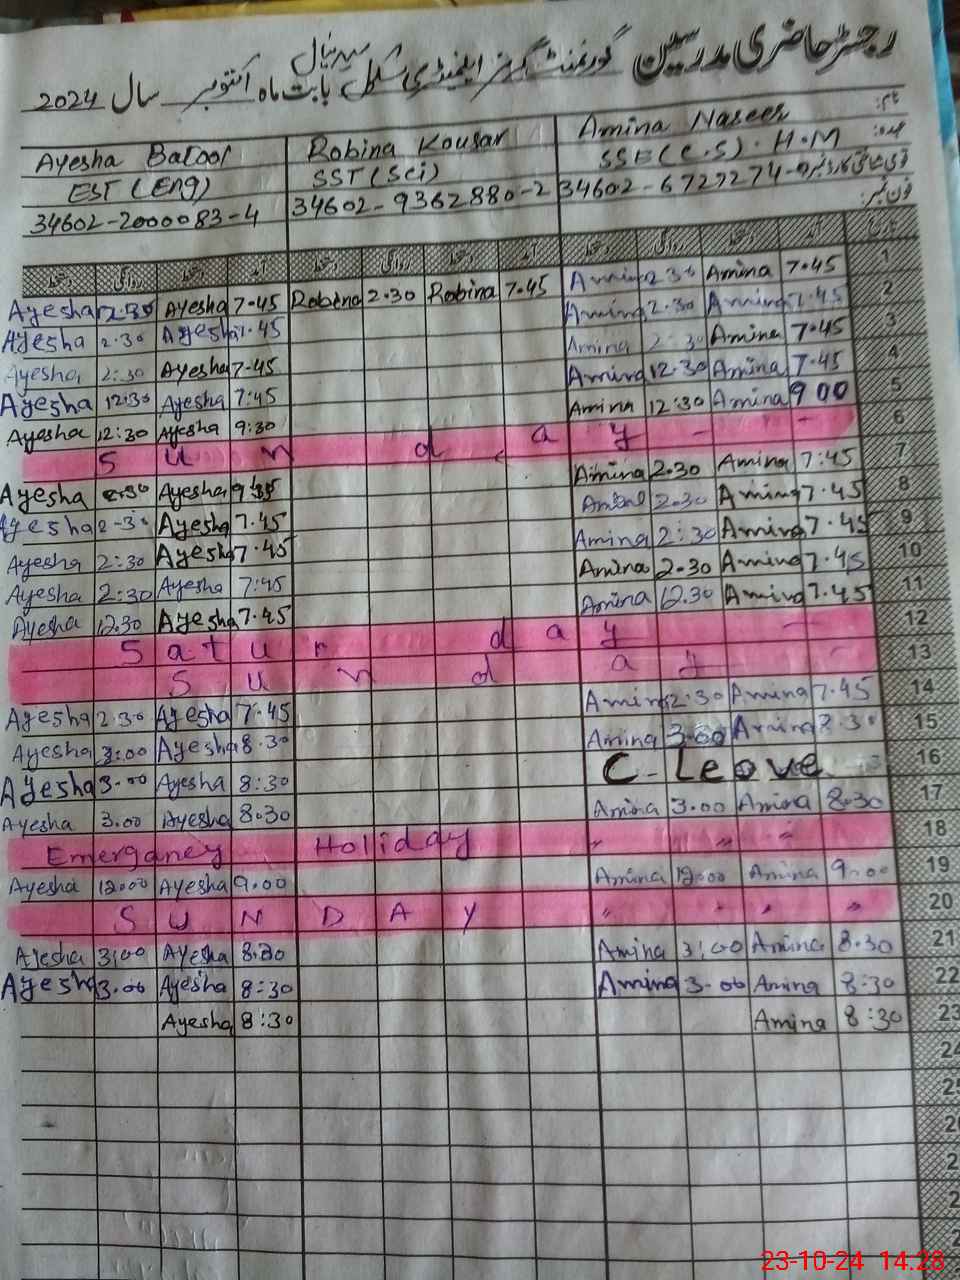 رجسٹر حاضری مدرسین گورنمنٹ گرلز ایلیمنٹری سکول بابت ماہ اکتوبر سال 2024
Ayesha Batool Robina Kousar Amina Naseer نام:
EST (Eng) SST (Sci) SSE (C.S) . H.M عہدہ:
34602-2000083-4 34602-9362880-2 34602-6727274-0
فون نمبر:
دستخط روانگی دستخط آمد دستخط روانگی دستخط آمد دستخط روانگی دستخط آمد تاریخ
Ayesha 2.30 Ayesha 7.45 Robina 2.30 Robina 7.45 Amina 2.30 Amina 7.45 1
Ayesha 2.30 Ayesha 7.45 Amina 2.30 Amina 7.45 2
Ayesha 2:30 Ayesha 7.45 Amina 2:30 Amina 7.45 3
Ayesha 12:30 Ayesha 7:45 Amina 12.30 Amina 7.45 4
Ayesha 12:30 Ayesha 9:30 Amina 12:30 Amina 9 00 5
S u n d a y - - 6
Ayesha 2.30 Ayesha Amina 2.30 Amina 7:45 7
Ayesha 2-30 Ayesha 7.45 Amina 2.30 Amina 7.45 8
Ayesha 2:30 Ayesha 7.45 Amina 2:30 Amina 7.45 9
Ayesha 2:30 Ayesha 7:45 Amina 2.30 Amina 7.45 10
Ayesha 12.30 Ayesha 7.45 Amina 12.30 Amina 7.45 11
S a t u r d a y - 12
S u n d a y - - 13
Ayesha 2.30 Ayesha 7.45 Amina 2.30 Amina 7.45 14
Ayesha 3:00 Ayesha 8.30 Amina 3.00 Amina 8.30 15
Ayesha 3.00 Ayesha 8:30 C - Leave 16
Ayesha 3.00 Ayesha 8.30 Amina 3.00 Amina 8.30 17
Emergancy Holiday " " " 18
Ayesha 12.00 Ayesha 9.00 Amina 12.00 Amina 9.00 19
S U N D A Y " " " " 20
Ayesha 3,00 Ayesha 8.30 Amina 3,00 Amina 8.30 21
Ayesha 3.00 Ayesha 8:30 Amina 3.00 Amina 8:30 22
Ayesha 8:30 Amina 8:30 23
24
23-10-24 14.28